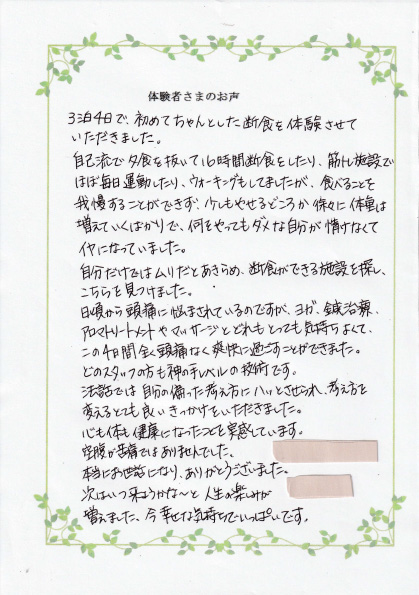 体験者さまのお声
3泊4日で、初めてちゃんとした断食を体験させて
いただきました。
自己流で夕食を抜いて16時間断食をしたり、筋トレ施設で
ほぼ毎日運動したり、ウォーキングもしてましたが、食べることを
我慢することができず、少しもやせるどころか徐々に体重は
増えていくばかりで、何をやってもダメな自分が情けなくて
イヤになっていました。
自分だけではムリだとあきらめ、断食ができる施設を探し、
こちらを見つけました。
日頃から頭痛に悩まされているのですが、ヨガ、鍼治療、
アロマトリートメントやマッサージとどれもとっても気持ちよくて、
この4日間全く頭痛なく爽快に過ごすことができました。
どのスタッフの方も神の手レベルの技術です。
法話では自分の偏った考え方にハッとさせられ、考え方を
変えるとても良いきっかけをいただきました。
心も体も健康になったことを実感しています。
空腹が苦痛ではありませんでした。
本当にお世話になり、ありがとうございました。
次はいつ来ようかな〜と人生の楽しみが
増えました、今幸せな気持ちでいっぱいです。